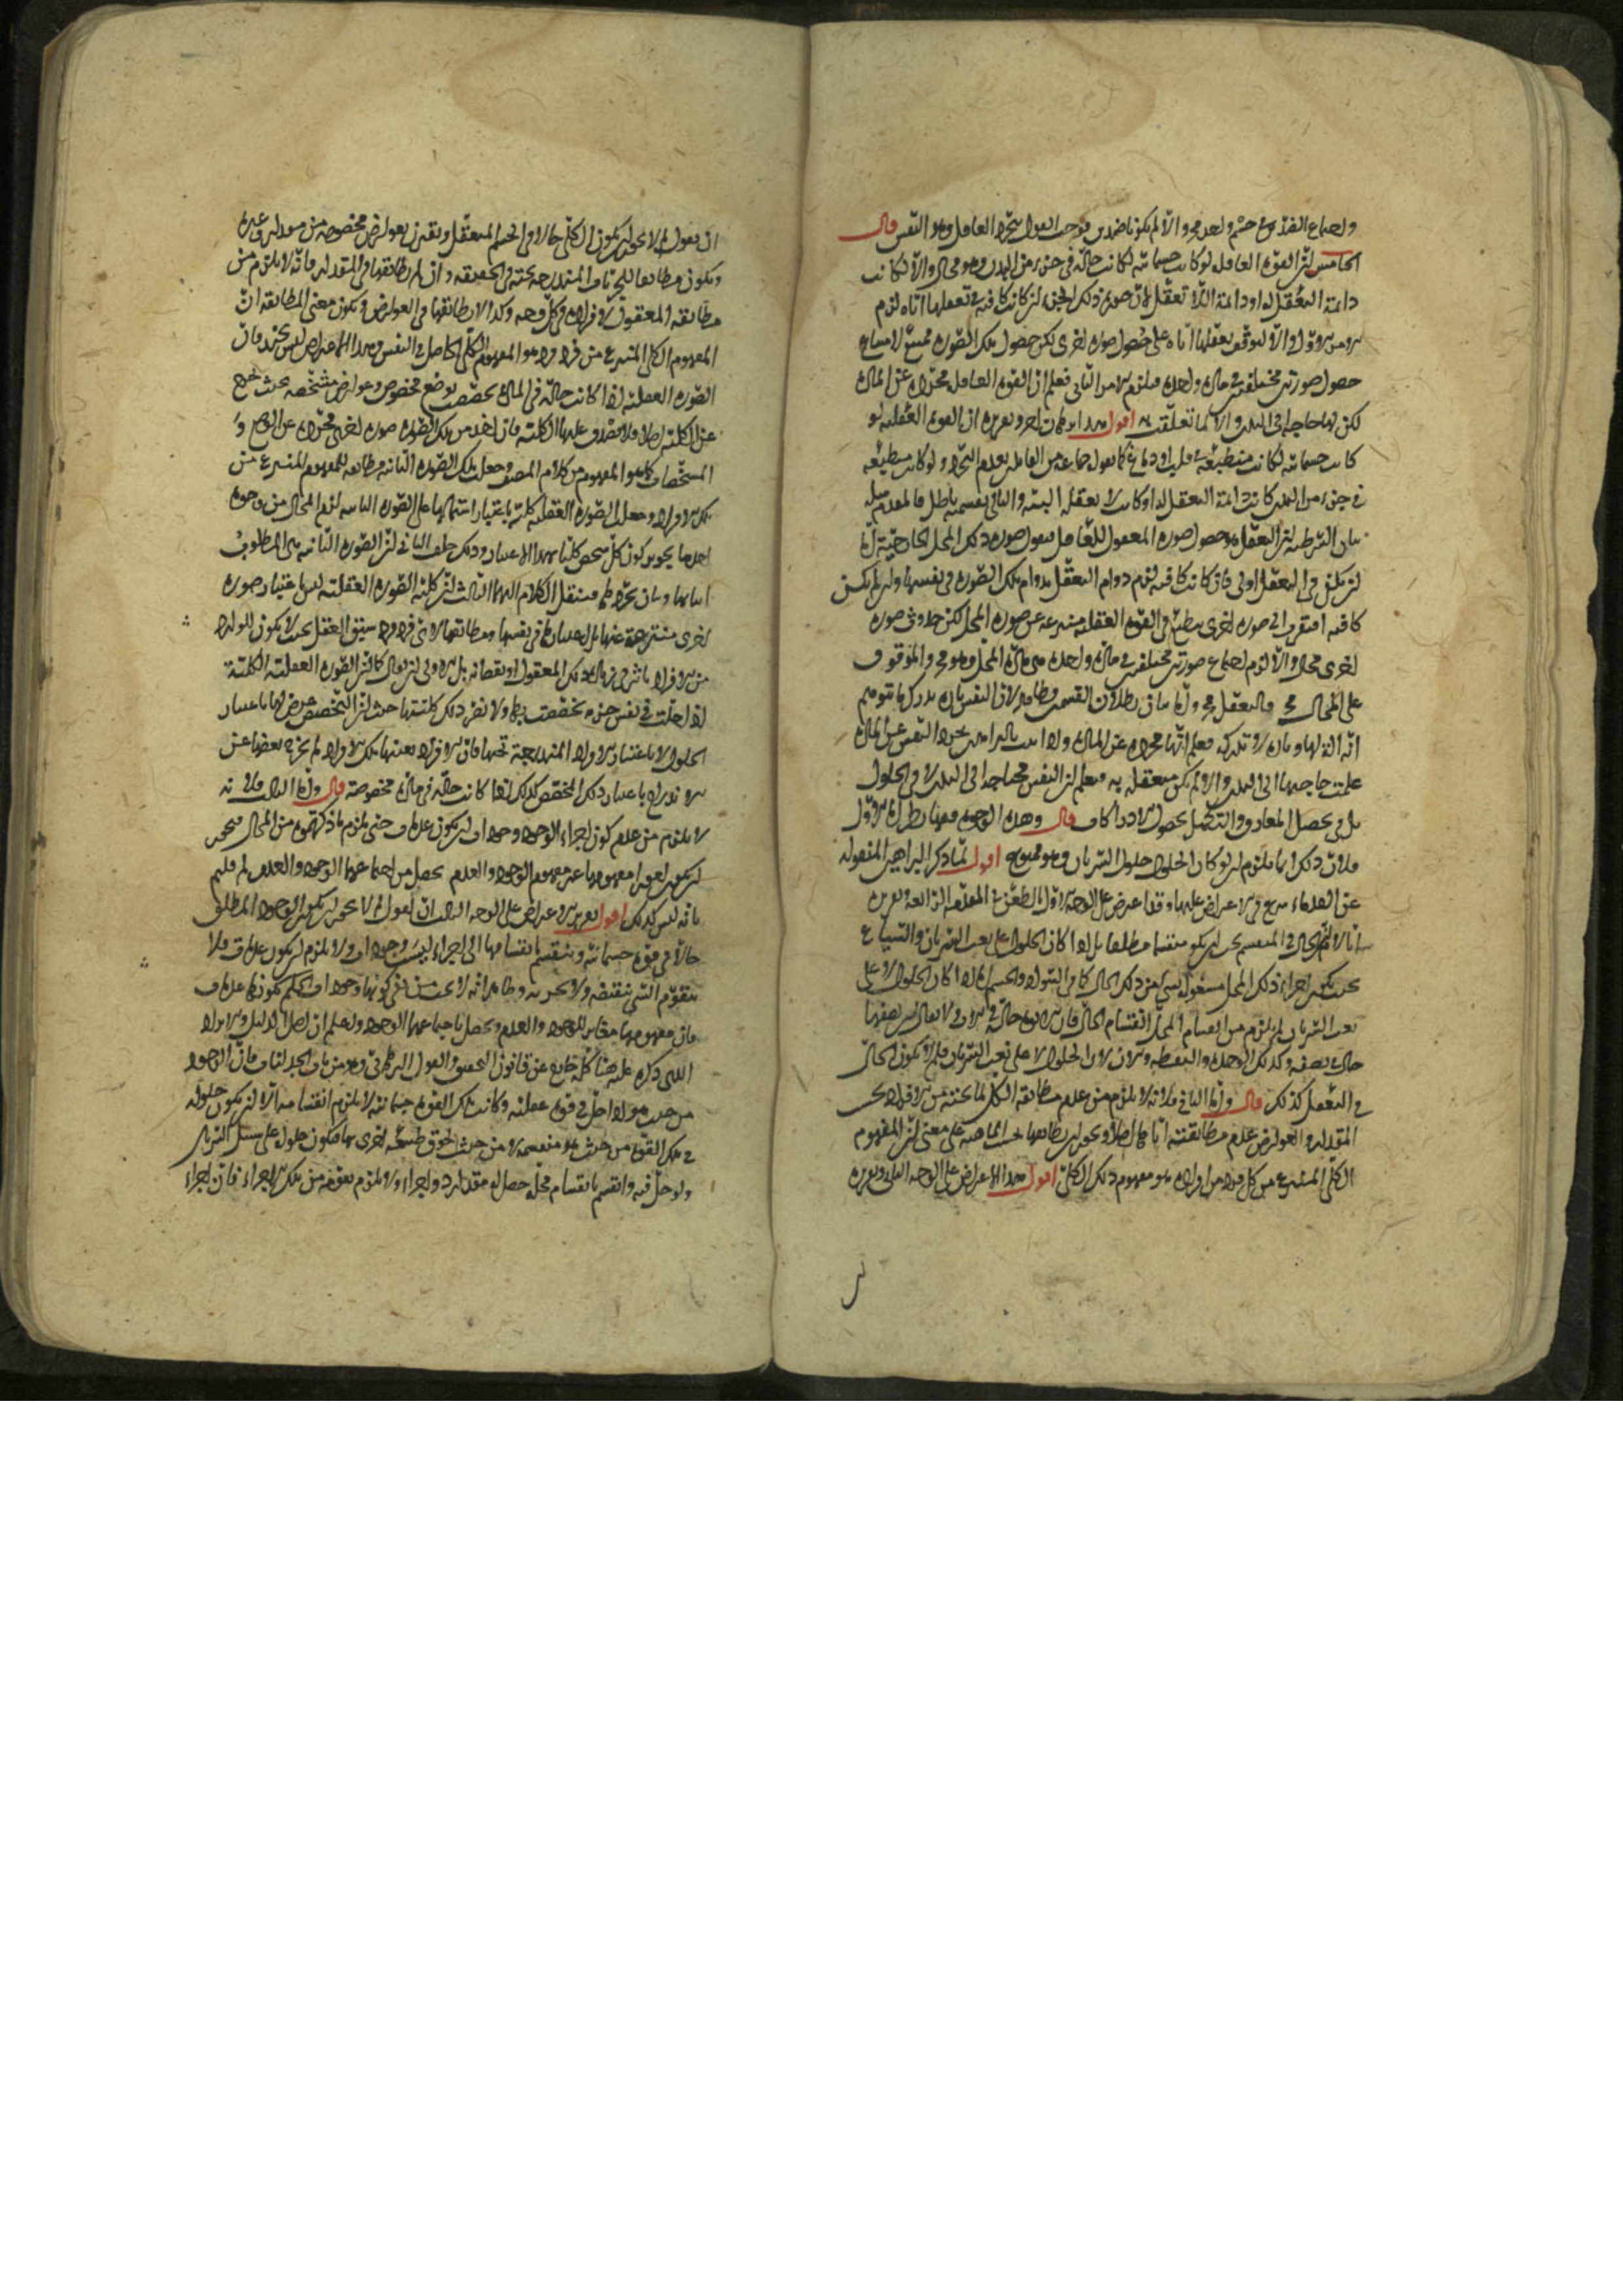 واجتماع الضدين في جسم واحد مح والا لم يكونا ضدين فوجب القول بتجرد العاقل وهو النفس قال
الخامس ان القوة العاقلة لو كانت جسمانية لكانت حالة في جزء من البدن وهو محال والا لكانت
دائمة التعقل له او دائمة اللا تعقل لان صورة ذلك الجزء ان كانت كافية في تعقلها اياه لزم
الاول والا لتوقف تعقلها اياه على حصول صورة اخرى لكن حصول تلك الصورة ممتنع لامتناع
حصول صورتين مختلفتين في مادة واحدة فيلزم الثاني فعلم ان القوة العاقلة مجردة عن المادة
لكن لها حاجة الى البدن والا لما تعلقت به اقول هذا برهان اخر وتقريره ان القوة العقلية لو
كانت جسمانية لكانت منطبعة في قلب او دماغ كما يقول جماعة من القائلين بعدم التجرد ولو كانت منطبعة
في جزء من البدن كانت دائمة التعقل له او كانت لا تعقله البتة والتالي بقسميه باطل فالمقدم مثله
بيان الشرطية ان التعقل هو حصول صورة المعقول للعاقل فنقول صورة ذلك المحل الخارجية اما
ان يكفي في التعقل او لا فان كانت كافية لزم دوام التعقل بدوام تلك الصورة في نفسها وان لم تكن
كافية افتقر الى صورة اخرى منطبعة في القوة العقلية منتزعة عن صورة المحل لكن حدوث صورة
اخرى محال والا لزم اجتماع صورتين مختلفتين في مادة واحدة هي مادة المحل وهو مح والموقوف
على المحال مح فالتعقل مح واما بيان بطلان القسمين فظاهر لان النفس تارة تدرك ما يتوهم
انه آلة لها وتارة لا تدركه فعلم انها مجردة عن المادة ولما ثبت بالبراهين تجرد النفس عن المادة
علمت حاجتها الى البدن والا لم تكن متعلقة به فيعلم ان النفس محتاجة الى البدن لا في الحلول
بل في تحصيل المعارف والتكمل بحصول الادراكات قال وهذه الوجوه فيها نظر اما الاول
فلان ذلك انما يلزم ان لو كان الحلول حلول السريان وهو ممنوع اقول لما ذكر البراهين المنقولة
عن القدماء شرع في الاعتراض عليها وقد اعترض على الوجه الاول بالطعن في المقدمة الرابعة وتقريره
انا لا نم ان الحال في المنقسم يجب ان يكون منقسما مطلقا بل اذا كان الحلول على نعت السريان والشياع
بحيث يكون كل جزء من ذلك المحل مشغولا بشيء من ذلك الحال كما في السواد والجسم اما اذا كان الحلول لا على
نعت السريان لم يلزم من انقسام المحل انقسام الحال فان الابوة حالة في الاب ولا يقال نصفها
حال في نصفه وكذلك الوحدة والنقطة والاين لان الحلول لا على نعت السريان فلم لا يكون الحال
في التعقل كذلك قال واما الثاني فلانه لا يلزم من عدم مطابقة الكلي لما تحته من الافراد بحسب
المقدار والعوارض عدم مطابقته اياها اصلا ويجوز ان يطابقها بحسب الماهية على معنى ان المفهوم
الكلي المنتزع من كل فرد من افراده هو مفهوم ذلك الكلي اقول هذا الاعتراض على الوجه الثاني وتقريره
ان نقول لم لا يجوز ان يكون الكلي حالا في الجسم المتعقل ويقترن بعوارض مخصوصة من مقدار وغيره
ويكون مطابقا للجزئيات المندرجة تحته في الحقيقة وان لم يطابقها في المقدار فانه لا يلزم من
مطابقة المعقول لافراده في كل وجه وكذا لا يطابقها في العوارض ويكون معنى المطابقة ان
المفهوم الكلي المنتزع من فرد فرد هو المفهوم الكلي الحاصل في النفس وهذا الاعتراض ليس بجيد فان
الصورة العقلية اذا كانت حالة في المادة تخصصت بوضع مخصوص وعوارض مشخصة بحيث تخرج
عن الكلية اصلا ولا يصدق عليها الكلية فان اخذ من تلك الصورة صورة اخرى مجردة عن الوضع و
المشخصات كما هو المفهوم من كلام المصنف وجعل تلك الصورة الثانية مطابقة للمفهوم المنتزع من
تلك الافراد وجعل الصورة العقلية كلية باعتبار اشتمالها على الصورة الثانية لزم المحال من وجوه
احدها يجوز كون كل شخص كليا بهذا الاعتبار وذلك خلف الثاني ان الصورة الثانية هي المطلوب
اثباتها وبيان تجردها فينتقل الكلام اليها الثالث ان كلية الصورة العقلية ليس باعتبار صورة
اخرى منتزعة عنها بل باعتبارها في نفسها ومطابقتها لاي فرد فرد سبق العقل بحيث لا يكون للوارد
من الافراد تاثير في زيادة ذلك المعقول او نقصانه بل الاولى ان يقال كما ان الصورة العقلية الكلية
اذا حلت في نفس جزئية تخصصت بها ولا تضر ذلك كليتها حيث ان التخصص عرض لها باعتبار
الحلول لا باعتبار الافراد المندرجة تحتها فان الافراد بعينها تلك الافراد لم يخرج بعضها عن
الاندراج باعتبار ذلك المخصص كذلك اذا كانت حالة في مادة مخصوصة قال واما الثالث فلانه
لا يلزم من عدم كون اجزاء الوجود وجودات ان يكون عدمات حتى يلزم ما ذكرتموه من المحال فيجوز
ان يكون امورا مفهومها غير مفهوم الوجود والعدم يحصل من اجتماعها الوجود والعدم لم قلتم
بانه ليس كذلك اقول تقرير الاعتراض على الوجه الثالث ان نقول لم لا يجوز ان يكون الوجود المطلق
حالا في قوة جسمانية وينقسم بانقسامها الى اجزاء ليست وجودات ولا يلزم ان يكون عدمات فلا
يتقوم الشيء بنقيضه ولا بجزئيه وظاهر انه لا يجب من نفي كونها وجودات الحكم بكونها عدمات
فان مفهومها مغاير للوجود والعدم ويحصل باجتماعها الوجود واعلم ان اصل الدليل والايراد
الذي ذكره عليه هنا كله خارج عن قانون التحقيق والقول البرهاني وهو من باب الجدليات فان الوجود
من حيث هو اذا حل في قوة عقلية وكانت تلك القوة جسمانية لا يلزم انقسامه الا ان يكون حلوله
في تلك القوة من حيث هي منقسمة لا من حيث لحوق طبيعة اخرى بها فيكون حلوله على سبيل السريان
ولو حل فيه وانقسم بانقسام محله حصل له مقدار ذو اجزاء ولا يلزم تقومه من تلك الاجزاء فان اجزاء